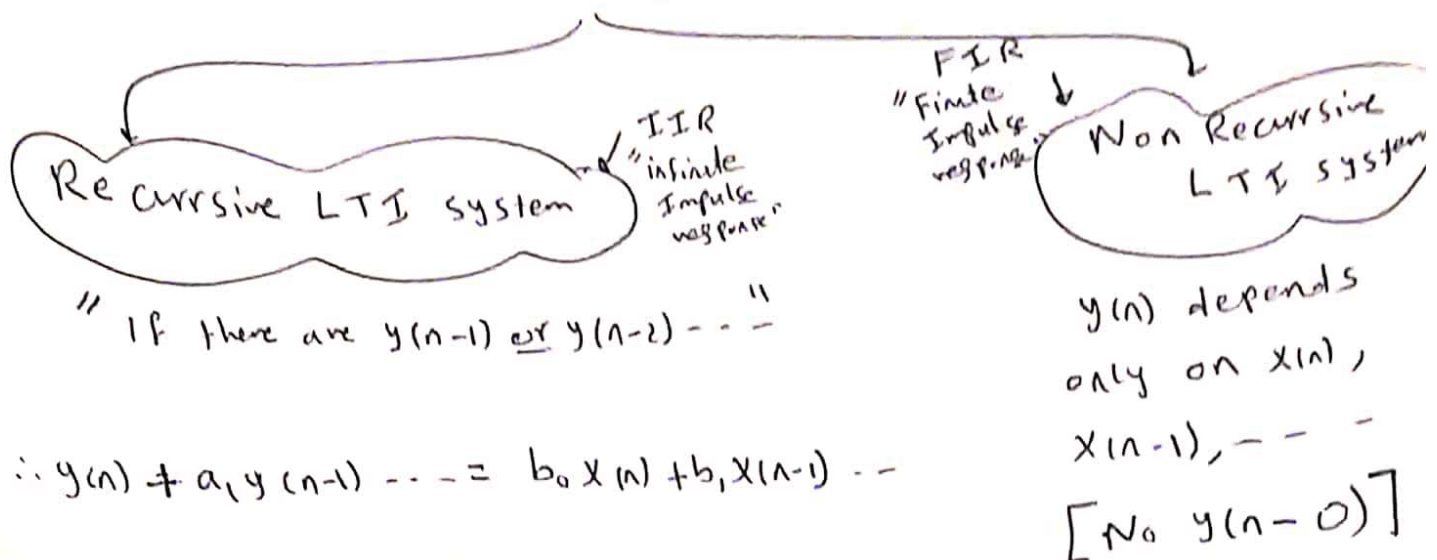 Recurrsive LTI system
IIR
"infinite
Impulse
response"
"If there are y(n-1) or y(n-2) - - - "
∴ y(n) + a₁ y(n-1) - - - = b₀ X(n) + b₁ X(n-1) - -
FIR
"Finite
Impulse
response"
Non Recurrsive
LTI system
y(n) depends
only on X(n),
X(n-1), - - -
[No y(n-0)]